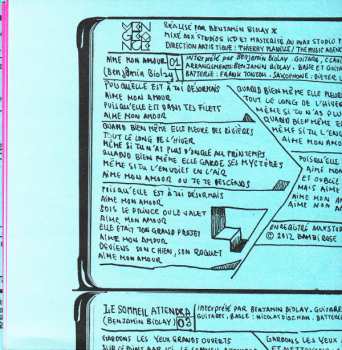 MON
GLOO
NOLE
RÉALISÉ PAR BENJAMIN BIOLAY
MIXÉ AUX STUDIOS ICP ET MASTERISÉ AU
DIRECTION ARTISTIQUE : THIERRY PLANELLE / THE MUSIC AGEN
AIME MON AMOUR 01
(Benjamin Biolay)
interprété par BENJAMIN BIOLAY. GUITARE,
ARRANGEMENTS: BENJAMIN BIOLAY. BASSE ET GUITAR
BATTERIE : SAXOPHONE :
PUISQU'ELLE EST À TOI DÉSORMAIS
AIME MON AMOUR
PUISQU'ELLE EST DANS TES FILETS
AIME MON AMOUR
QUAND BIEN MÊME ELLE PLEURE DES RIVIÈRES
TOUT LE LONG DE L'HIVER
MÊME SI TU N'AS PLUS D'ANGLE AU PRINTEMPS
QUAND BIEN MÊME ELLE GARDE SES MYSTÈRES
MÊME SI TU L'ENVOIES EN L'AIR
AIME MON AMOUR OU TE TE DESCENDS
PUISQU'ELLE EST À TOI DÉSORMAIS
AIME MON AMOUR
SOIS LE PRINCE OU LE VALET
AIME MON AMOUR
ELLE ÉTAIT TON GRAND PROJET
AIME MON AMOUR
DEVIENS SON CHIEN, SON ROQUET
AIME MON AMOUR
QUAND BIEN MÊME ELLE PLEURE
TOUT LE LONG DE L'HIVER
MÊME SI TU N'AS PLU
QUAND BIEN MÊME
MÊME SI TU L'EN
AIME MON AMOUR
PUISQU'ELLE
AIME MON
ET OUBLIE
MAIS AIME
AIME MON A
AIME MON A
ENREGISTRÉ
© 2012 BAMBI ROSE
LE SOMMEIL ATTENDRA
(BENJAMIN BIOLAY) 03
interprété par BENJAMIN BIOLAY. GUITARE
GUITARES, BASSE : NICOLAS FISZMAN. BATTERIE
GARDONS LES YEUX GRANDS OUVERTS
GARDONS LES YEUX